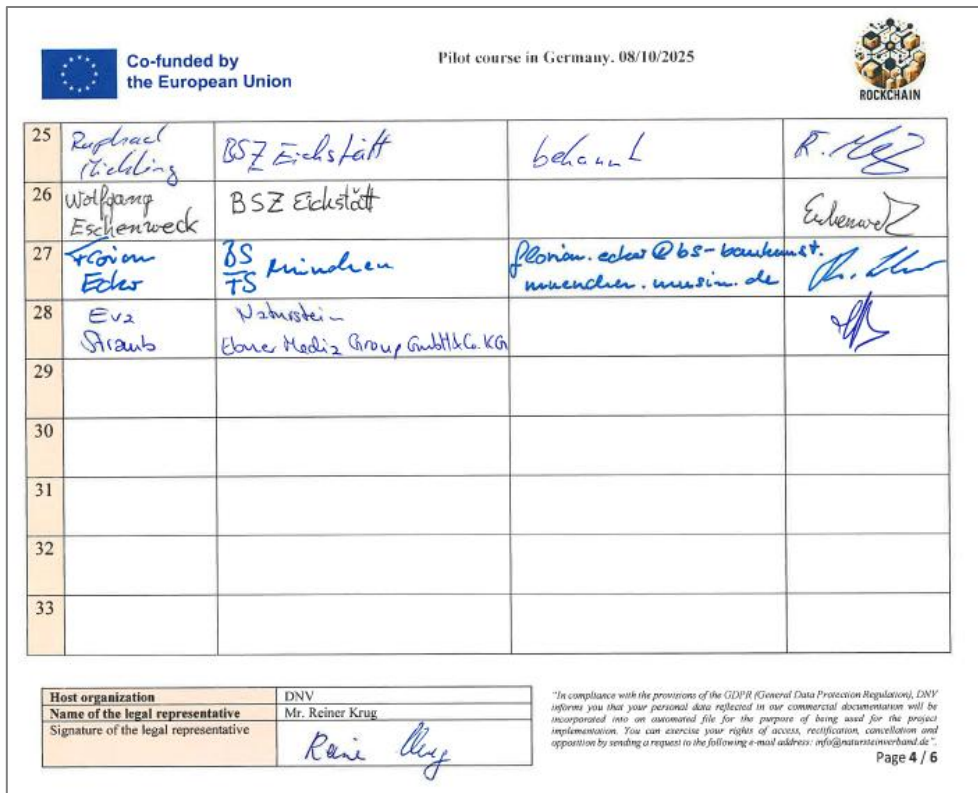 Co-funded by
the European Union
Pilot course in Germany. 08/10/2025
ROCKCHAIN
25 Raphael BSZ Eichstätt bekannt R.
26 Wolfgang Eschenweck BSZ Eichstätt
27 Florian Ecker BS TS München florian.ecker@bs-baukunst.
muenchen.musin.de
28 Eva Straub Naturstein
Ebner Media Group GmbH & Co. KG
29
30
31
32
33
Host organization DNV
Name of the legal representative Mr. Reiner Krug
Signature of the legal representative
"In compliance with the provisions of the GDPR (General Data Protection Regulation), DNV
informs you that your personal data reflected in our commercial documentation will be
incorporated into an automated file for the purpose of being used for the project
implementation. You can exercise your rights of access, rectification, cancellation and
opposition by sending a request to the following e-mail address: info@natursteinverband.de".
Page 4 / 6